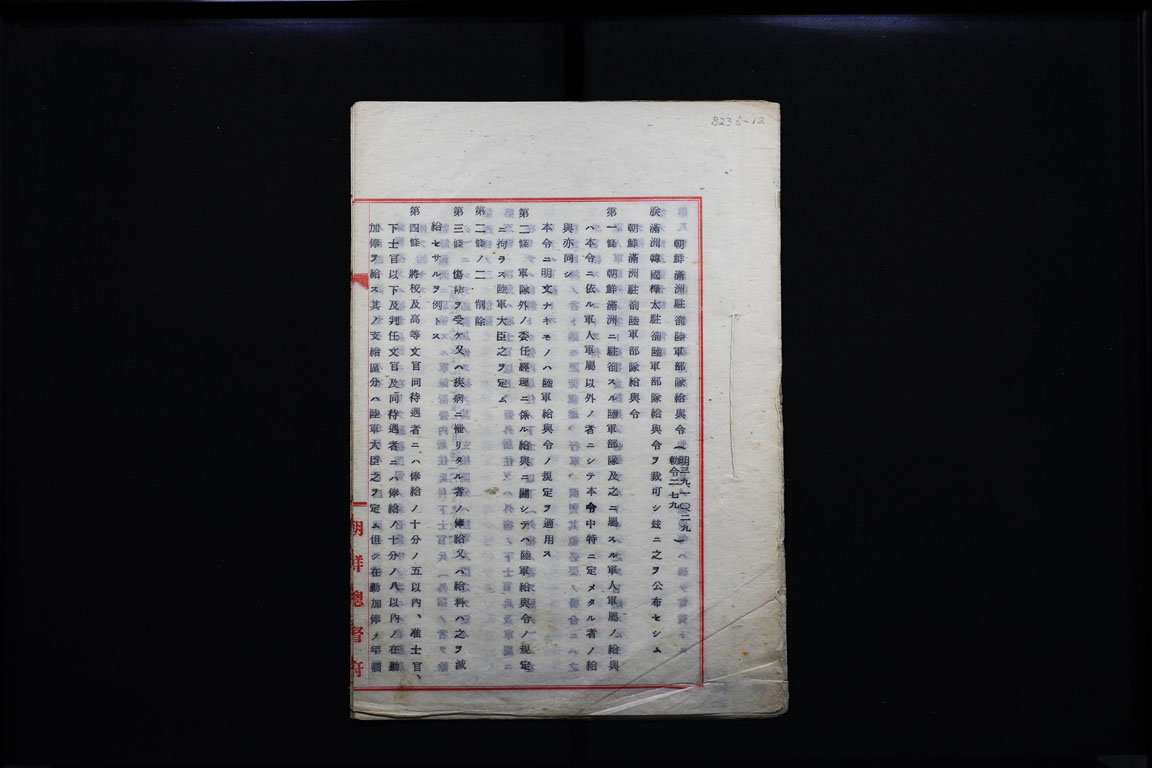 8236-12
朝鮮滿洲駐剳陸軍部隊給與令（明三九、一〇、二九
勅令二七九）
朕滿洲韓國樺太駐剳陸軍部隊給與令ヲ裁可シ玆ニ之ヲ公布セシム
朝鮮滿洲駐剳陸軍部隊給與令
第一條 朝鮮滿洲ニ駐剳スル陸軍部隊及之ニ屬スル軍人軍屬ノ給與
ハ本令ニ依ル軍人軍屬以外ノ者ニシテ本令中特ニ定メタル者ノ給
與亦同シ
本令ニ明文ナキモノハ陸軍給與令ノ規定ヲ適用ス
第二條 軍隊外ノ委任經理ニ係ル給與ニ關シテハ陸軍給與令ノ規定
ニ拘ラス陸軍大臣之ヲ定ム
第二條ノ二 削除
第三條 傷痍ヲ受ケ又ハ疾病ニ罹リタル者ノ俸給又ハ給料ハ之ヲ減
給セサルヲ例トス
第四條 將校及高等文官同待遇者ニハ俸給ノ十分ノ五以內、准士官、
下士官以下及判任文官及同待遇者ニハ俸給ノ十分ノ八以內ノ在勤
加俸ヲ給ス其ノ支給區分ハ陸軍大臣之ヲ定ム但シ在勤加俸ノ年額
朝鮮總督府